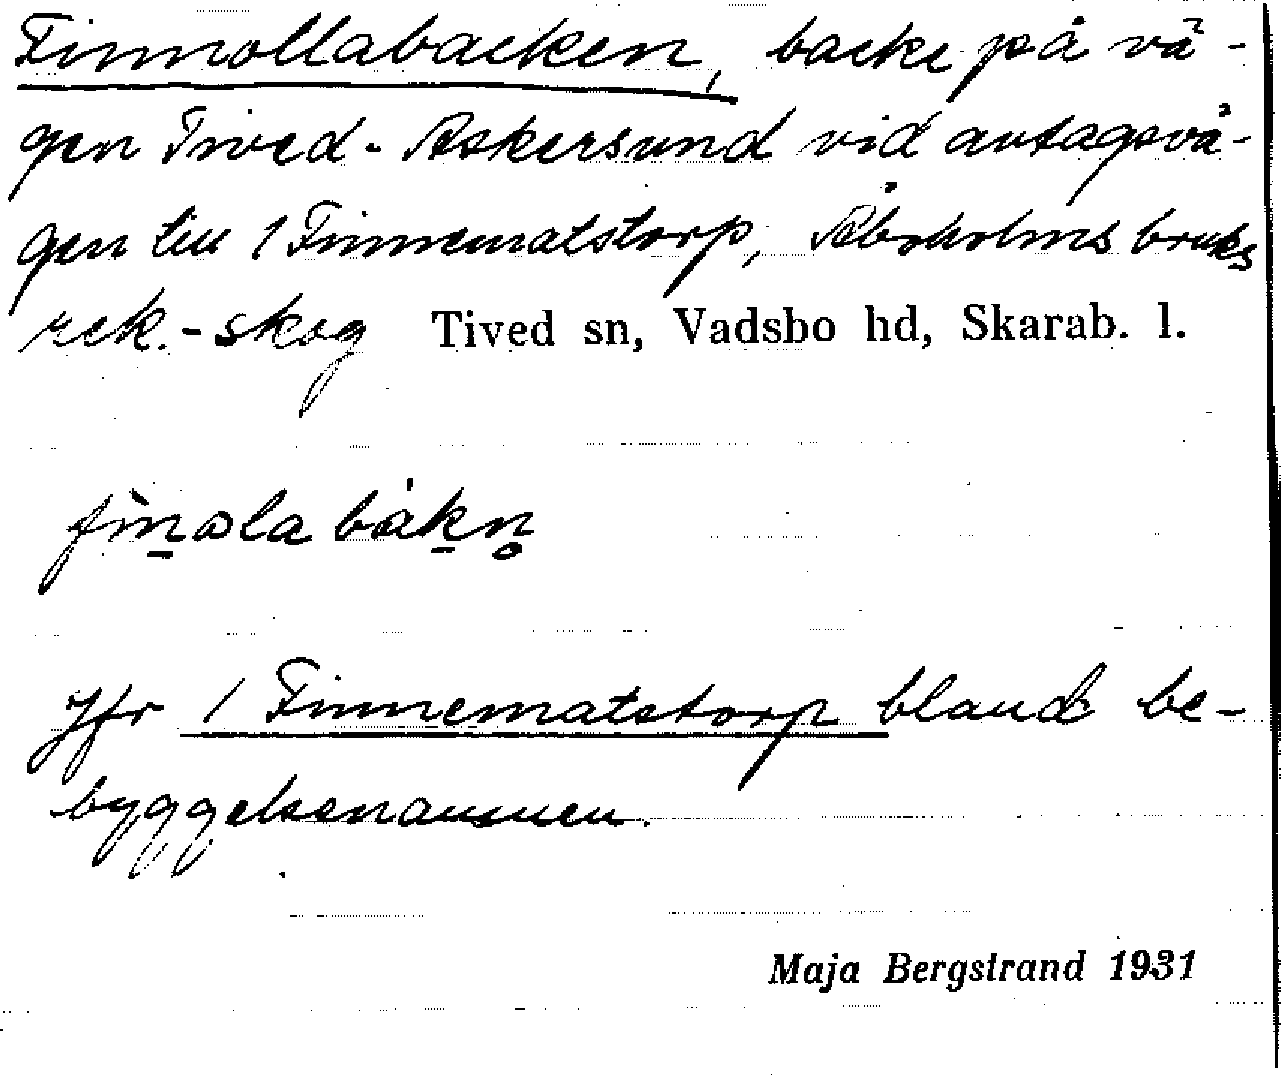 Finnollabacken, backe på vä-
gen Tived - Askersund vid avtagsvä-
gen till 1 Finnematstorp, Åboholms bruks
rek.-skog Tived sn, Vadsbo hd, Skarab. l.
fìn̠ɷla bák̠n̥
Jfr 1 Finnematstorp bland be-
byggelsenamnen.
Maja Bergstrand 1931